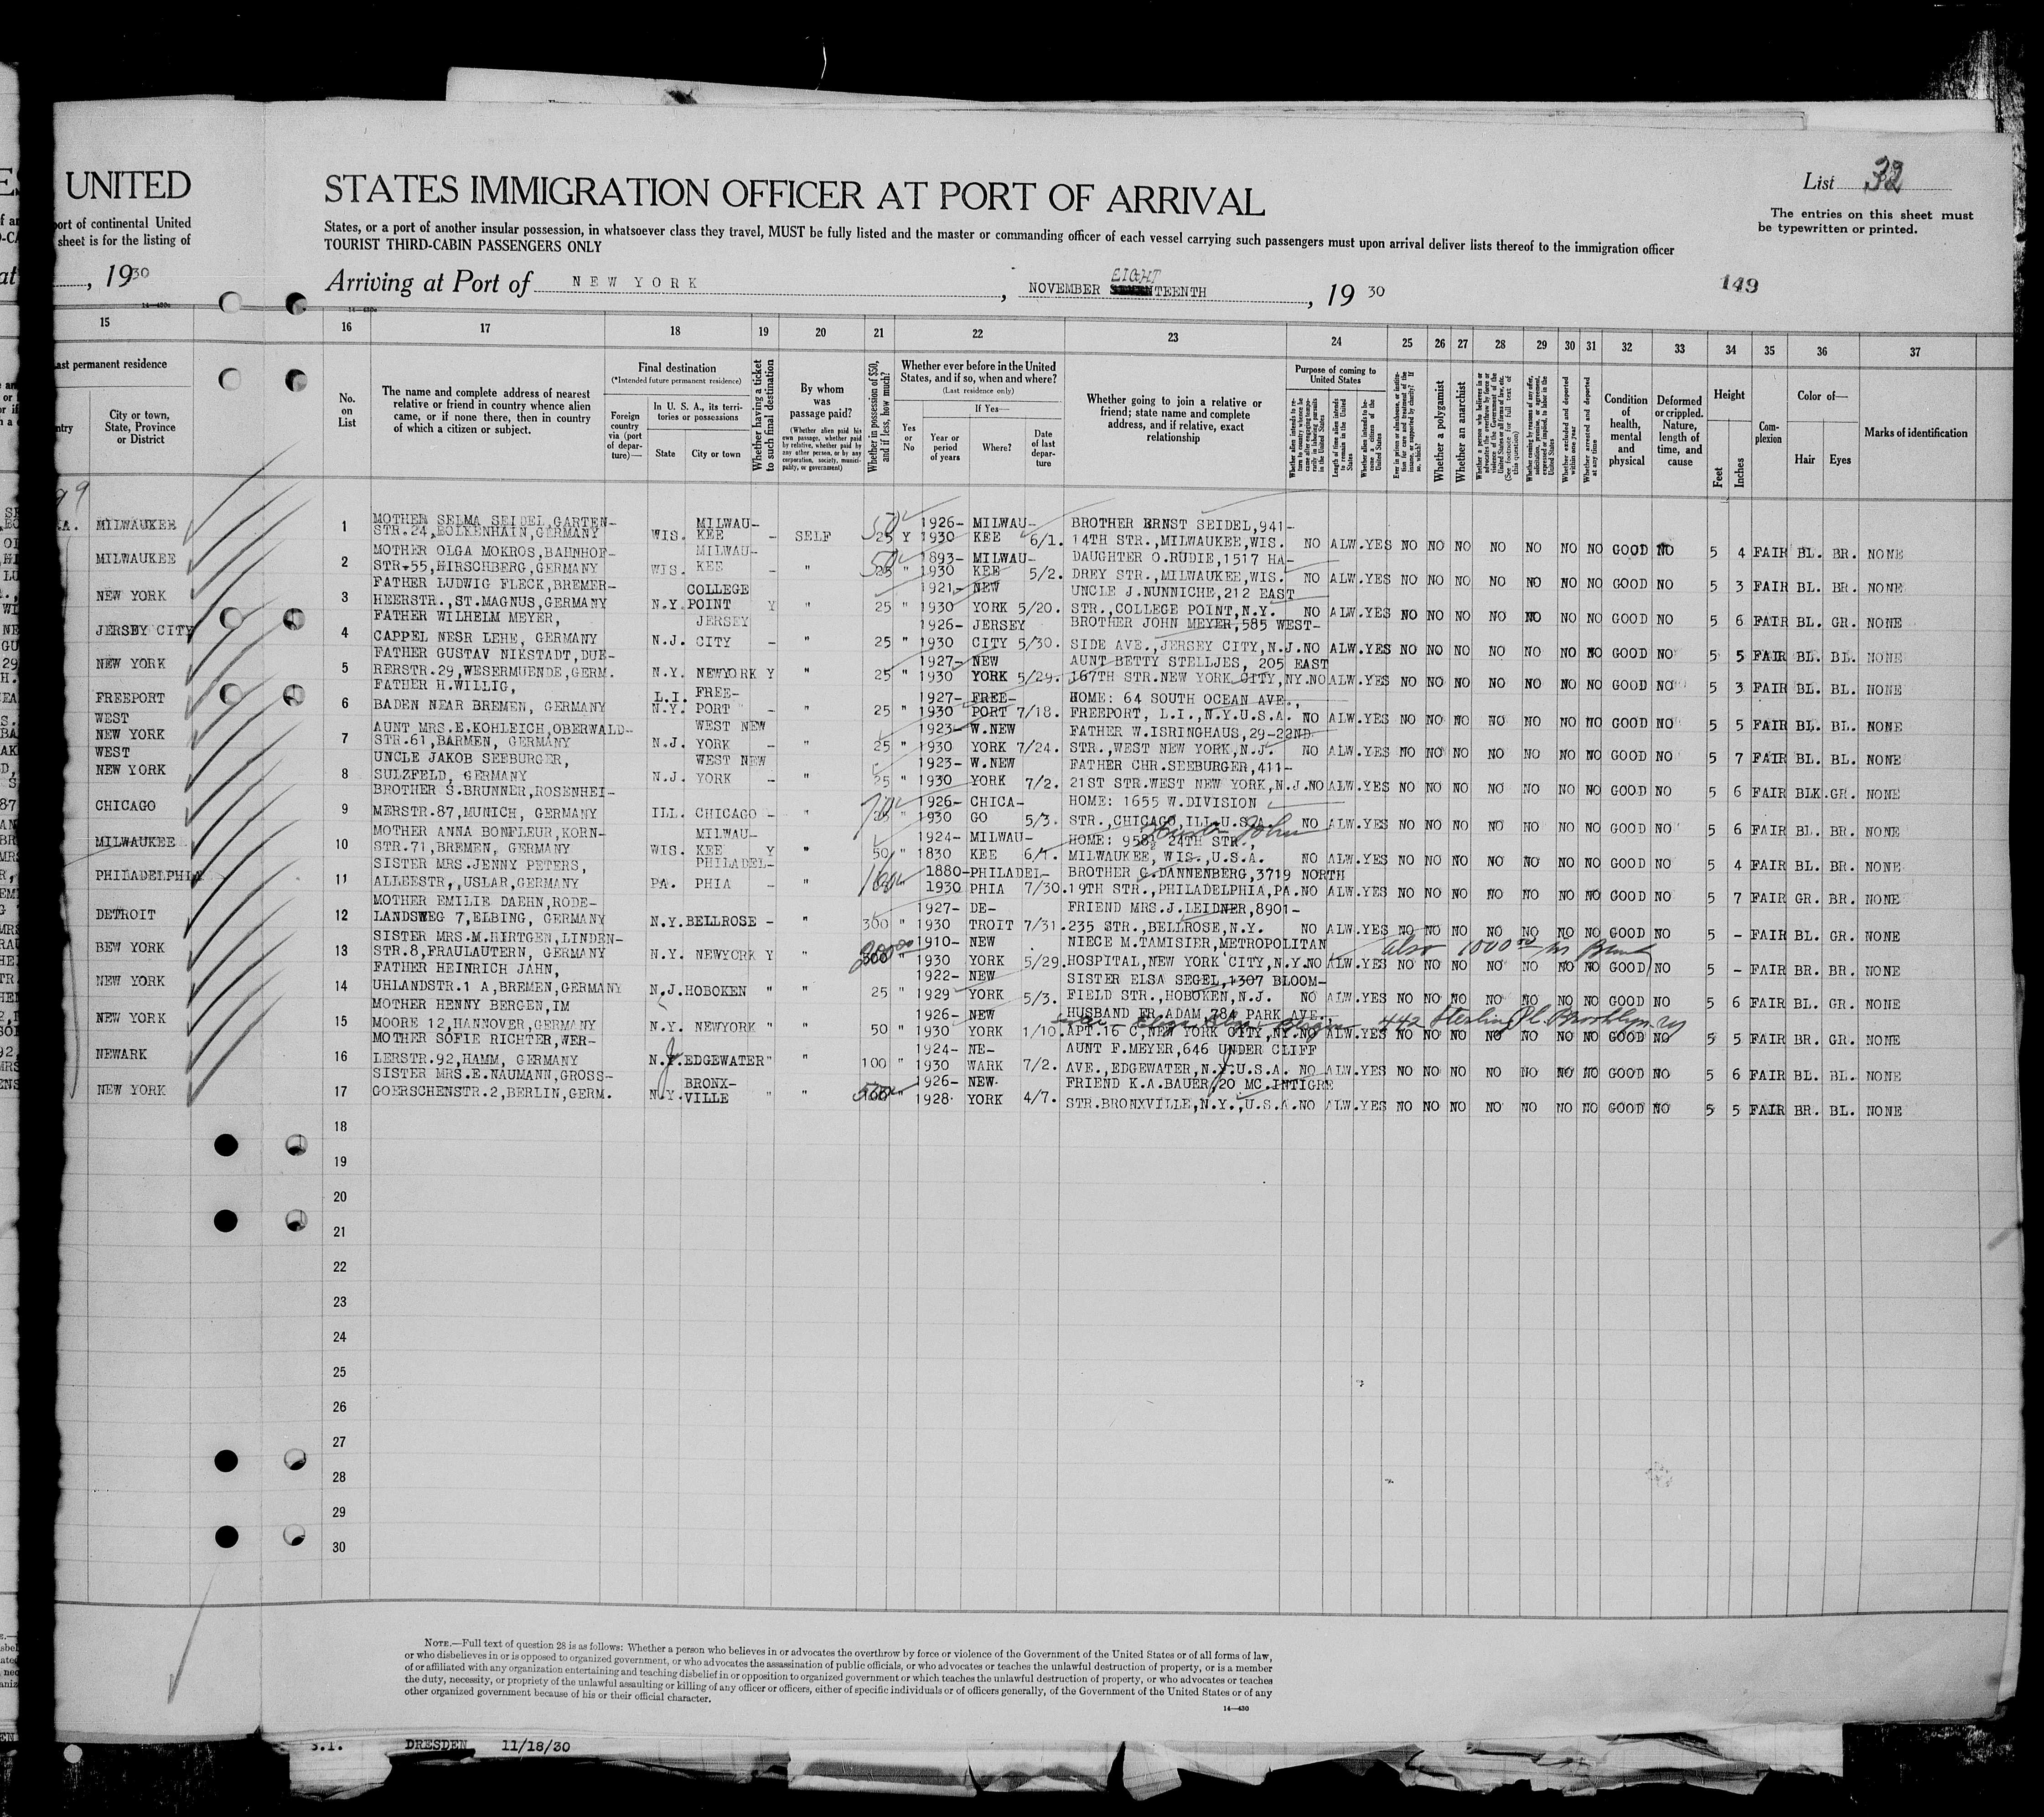 UNITED
port of continental United
sheet is for the listing of
, 1930
STATES IMMIGRATION OFFICER AT PORT OF ARRIVAL
List 32
The entries on this sheet must
be typewritten or printed.
States, or a port of another insular possession, in whatsoever class they travel, MUST be fully listed and the master or commanding officer of each vessel carrying such passengers must upon arrival deliver lists thereof to the immigration officer
TOURIST THIRD-CABIN PASSENGERS ONLY
Arriving at Port of NEW YORK, NOVEMBER EIGHTEENTH, 1930
149
15 16 17 18 19 20 21 22 23 24 25 26 27 28 29 30 31 32 33 34 35 36 37
Last permanent residence
City or town,
State, Province
or District
No.
on
List
The name and complete address of nearest
relative or friend in country whence alien
came, or if none there, then in country
of which a citizen or subject.
Final destination
(*Intended future permanent residence)
Foreign
country
via (port
of depar-
ture)—
In U. S. A., its terri-
tories or possessions
State
City or town
Whether having a ticket
to such final destination
By whom
was
passage paid?
(Whether alien paid his
own passage, whether paid
by relative, whether paid by
any other person, or by any
corporation, society, munici-
pality, or government)
Whether in possession of $50,
and if less, how much?
Whether ever before in the United
States, and if so, when and where?
(Last residence only)
Yes
or
No
If Yes—
Year or
period
of years
Where?
Date
of last
depar-
ture
Whether going to join a relative or
friend; state name and complete
address, and if relative, exact
relationship
Purpose of coming to
United States
Length of time alien intends
to remain in the United
States
Whether alien intends to be-
come a citizen of the
United States
Whether a polygamist
Whether an anarchist
Whether excluded and deported
within one year
Whether arrested and deported
at any time
Condition
of
health,
mental
and
physical
Deformed
or crippled.
Nature,
length of
time, and
cause
Height
Feet
Inches
Com-
plexion
Color of—
Hair
Eyes
Marks of identification
MILWAUKEE 1 MOTHER SELMA SEIDEL,GARTEN-
STR.24,BOLKENHAIN,GERMANY WIS. MILWAU-
KEE - SELF 50 25 Y 1926-
1930 MILWAU-
KEE 6/1. BROTHER ERNST SEIDEL,941-
14TH STR.,MILWAUKEE,WIS. NO ALW. YES NO NO NO NO NO NO NO GOOD NO 5 4 FAIR BL. BR. NONE
MILWAUKEE 2 MOTHER OLGA MOKROS,BAHNHOF-
STR-55,HIRSCHBERG,GERMANY WIS. MILWAU-
KEE - " 50 25 " 1893-
1930 MILWAU-
KEE 5/2. DAUGHTER O.RUDIE,1517 HA-
DREY STR.,MILWAUKEE,WIS. NO ALW. YES NO NO NO NO NO NO NO GOOD NO 5 3 FAIR BL. BR. NONE
NEW YORK 3 FATHER LUDWIG FLECK,BREMER-
HEERSTR.,ST.MAGNUS,GERMANY N.Y. COLLEGE
POINT Y " 25 " 1921-
1930 NEW
YORK 5/20. UNCLE J.NUNNICHE,212 EAST
STR.,COLLEGE POINT,N.Y. NO ALW. YES NO NO NO NO NO NO NO GOOD NO 5 6 FAIR BL. GR. NONE
JERSEY CITY 4 FATHER WILHELM MEYER,
CAPPEL NESR LEHE, GERMANY N.J. JERSEY
CITY - " 25 " 1926-
1930 JERSEY
CITY 5/30. BROTHER JOHN MEYER,585 WEST-
SIDE AVE.,JERSEY CITY,N.J. NO ALW. YES NO NO NO NO NO NO NO GOOD NO 5 5 FAIR BL. BL. NONE
NEW YORK 5 FATHER GUSTAV NIKSTADT,DUE-
RERSTR.29,WESERMUENDE,GERM. N.Y. NEWYORK Y " 25 " 1927-
1930 NEW
YORK 5/29. AUNT BETTY STELLJES, 205 EAST
167TH STR.NEW YORK CITY,NY. NO ALW. YES NO NO NO NO NO NO NO GOOD NO 5 3 FAIR BL. BL. NONE
FREEPORT 6 FATHER H.WILLIG,
BADEN NEAR BREMEN, GERMANY L.I.
N.Y. FREE-
PORT - " 25 " 1927-
1930 FREE-
PORT 7/18. HOME: 64 SOUTH OCEAN AVE.,
FREEPORT, L.I.,N.Y.U.S.A. NO ALW. YES NO NO NO NO NO NO NO GOOD NO 5 5 FAIR BL. BL. NONE
WEST
NEW YORK 7 AUNT MRS.E.KOHLEICH,OBERWALD-
STR.61,BARMEN, GERMANY N.J. WEST NEW
YORK - " 25 " 1923-
1930 W.NEW
YORK 7/24. FATHER W.ISRINGHAUS,29-22ND
STR.,WEST NEW YORK,N.J. NO ALW. YES NO NO NO NO NO NO NO GOOD NO 5 7 FAIR BL. BL. NONE
WEST
NEW YORK 8 UNCLE JAKOB SEEBURGER,
SULZFELD, GERMANY N.J. WEST NEW
YORK - " 25 " 1923-
1930 W.NEW
YORK 7/2. FATHER CHR.SEEBURGER,411-
21ST STR.WEST NEW YORK,N.J. NO ALW. YES NO NO NO NO NO NO NO GOOD NO 5 6 FAIR BLK. GR. NONE
CHICAGO 9 BROTHER S.BRUNNER,ROSENHEI-
MERSTR.87,MUNICH, GERMANY ILL. CHICAGO - " 25 " 1926-
1930 CHICA-
GO 5/3. HOME: 1655 W.DIVISION
STR.,CHICAGO,ILL.U.S.A. NO ALW. YES NO NO NO NO NO NO NO GOOD NO 5 6 FAIR BL. BR. NONE
John
MILWAUKEE 10 MOTHER ANNA BONFLEUR,KORN-
STR.71,BREMEN, GERMANY WIS. MILWAU-
KEE Y " 50 " 1924-
1830 MILWAU-
KEE 6/1. HOME: 958½ 24TH STR.,
MILWAUKEE, WIS.,U.S.A. NO ALW. YES NO NO NO NO NO NO NO GOOD NO 5 4 FAIR BL. BR. NONE
PHILADELPHIA 11 SISTER MRS.JENNY PETERS,
ALLEESTR,,USLAR,GERMANY PA. PHILADEL-
PHIA - " " 1880-
1930 PHILADEL-
PHIA 7/30. BROTHER G.DANNENBERG,3719 NORTH
19TH STR.,PHILADELPHIA,PA. NO ALW. YES NO NO NO NO NO NO NO GOOD NO 5 7 FAIR GR. BR. NONE
DETROIT 12 MOTHER EMILIE DAEHN,RODE-
LANDSWEG 7,ELBING, GERMANY N.Y. BELLROSE - " 300 " 1927-
1930 DE-
TROIT 7/31. FRIEND MRS.J.LEIDNER,8901-
235 STR.,BELLROSE,N.Y. NO ALW. YES NO NO NO NO NO NO NO GOOD NO 5 - FAIR BL. GR. NONE
also 1000 00 in Bank
BEW YORK 13 SISTER MRS.M.HIRTGEN,LINDEN-
STR.8,FRAULAUTERN, GERMANY N.Y. NEWYORK Y " " 1910-
1930 NEW
YORK 5/29. NIECE M.TAMISIER,METROPOLITAN
HOSPITAL,NEW YORK CITY,N.Y. NO ALW. YES NO NO NO NO NO NO NO GOOD NO 5 - FAIR BR. BR. NONE
NEW YORK 14 FATHER HEINRICH JAHN,
UHLANDSTR.1 A,BREMEN,GERMANY N.J. HOBOKEN " " 25 " 1922-
1929 NEW
YORK 5/3. SISTER ELSA SEGEL,1307 BLOOM-
FIELD STR.,HOBOKEN,N.J. NO ALW. YES NO NO NO NO NO NO NO GOOD NO 5 6 FAIR BL. GR. NONE
442 Sterling Pl. Brooklyn NY
NEW YORK 15 MOTHER HENNY BERGEN,IM
MOORE 12,HANNOVER,GERMANY N.Y. NEWYORK " " 50 " 1926-
1930 NEW
YORK 1/10. HUSBAND FR.ADAM 784 PARK AVE.
APT.16 C,NEW YORK CITY,NY. NO ALW. YES NO NO NO NO NO NO NO GOOD NO 5 5 FAIR BR. GR. NONE
NEWARK 16 MOTHER SOFIE RICHTER,WER-
LERSTR.92,HAMM, GERMANY N.J. EDGEWATER " " 100 " 1924-
1930 NE-
WARK 7/2. AUNT F.MEYER,646 UNDER CLIFF
AVE.,EDGEWATER,N.J.U.S.A. NO ALW. YES NO NO NO NO NO NO NO GOOD NO 5 6 FAIR BL. BL. NONE
NEW YORK 17 SISTER MRS.E.NAUMANN,GROSS-
GOERSCHENSTR.2,BERLIN,GERM. N.Y. BRONX-
VILLE " " 500 " 1926-
1928 NEW
YORK 4/7. FRIEND K.A.BAUER,20 MC.INTIGRE
STR.BRONXVILLE,N.Y.,U.S.A. NO ALW. YES NO NO NO NO NO NO NO GOOD NO 5 5 FAIR BR. BL. NONE
18
19
20
21
22
23
24
25
26
27
28
29
30
NOTE.—Full text of question 28 is as follows: Whether a person who believes in or advocates the overthrow by force or violence of the Government of the United States or of all forms of law,
or who disbelieves in or is opposed to organized government, or who advocates the assassination of public officials, or who advocates or teaches the unlawful destruction of property, or is a member
of or affiliated with any organization entertaining and teaching disbelief in or opposition to organized government or which teaches the unlawful destruction of property, or who advocates or teaches
the duty, necessity, or propriety of the unlawful assaulting or killing of any officer or officers, either of specific individuals or of officers generally, of the Government of the United States or of any
other organized government because of his or their official character.
14—430
S.I. DRESDEN 11/18/30